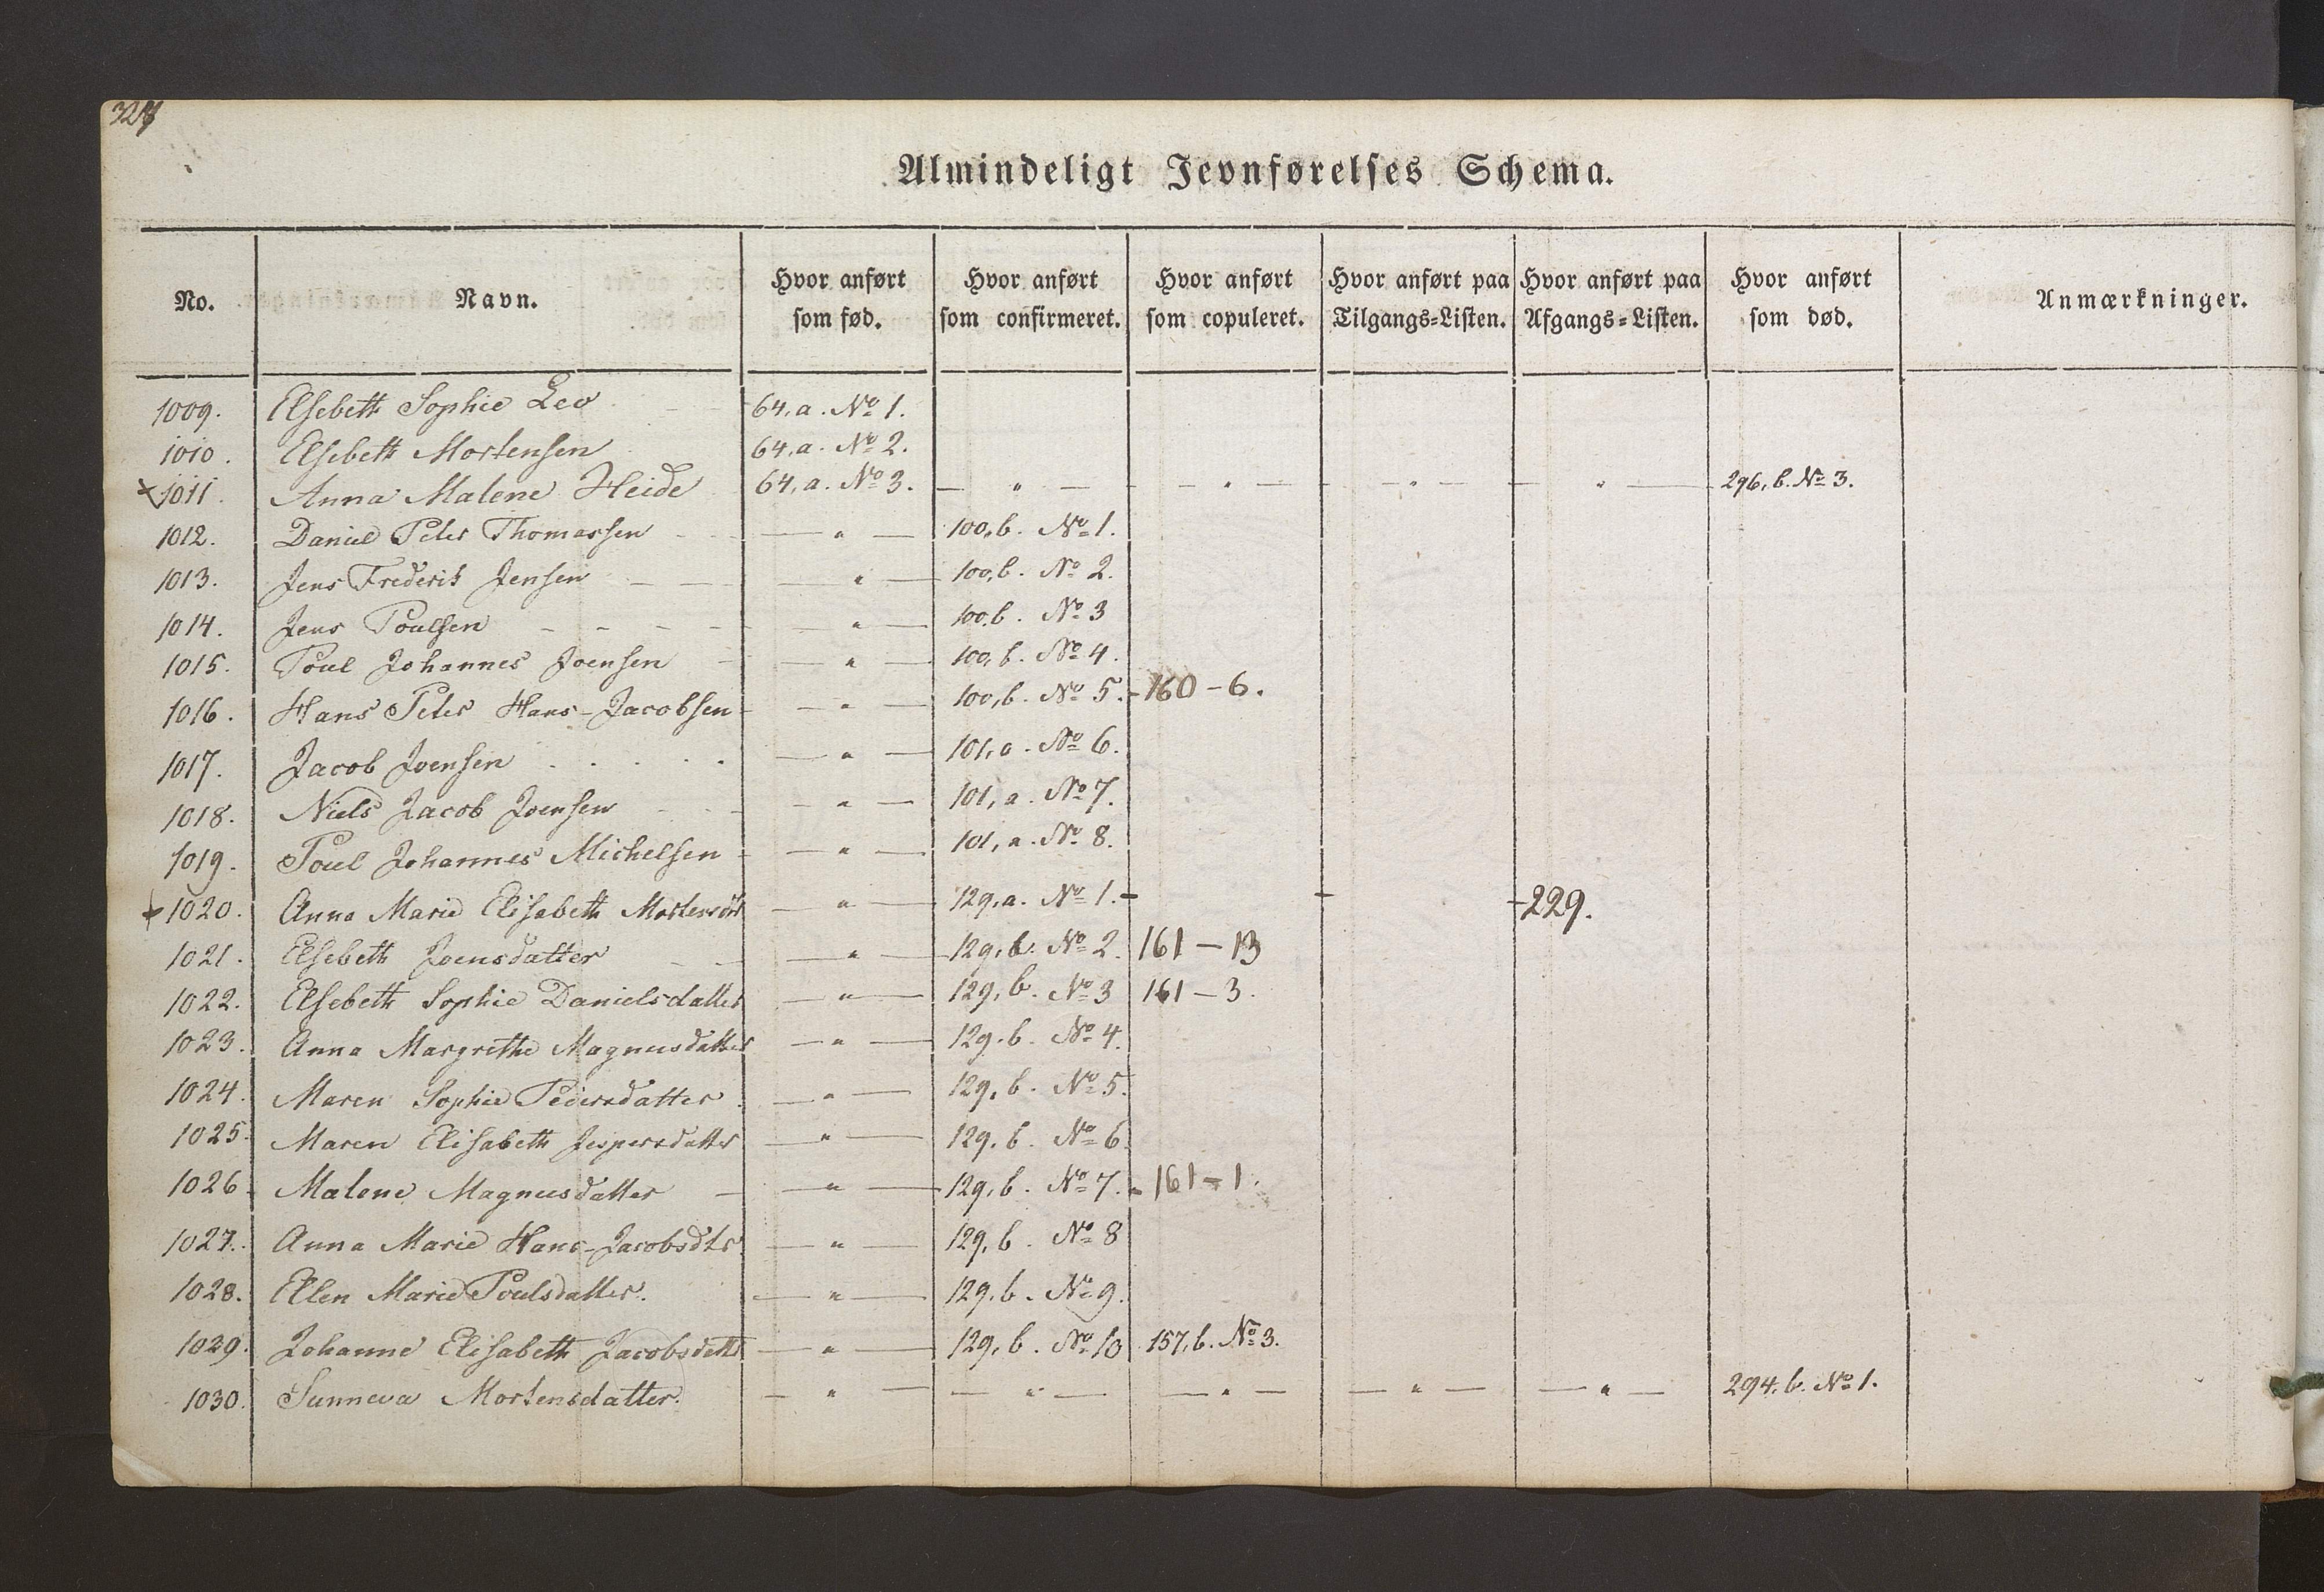 Almindeligt Jevnførelses Schema.
No. | Navn. | Hvor anført som fød. | Hvor anført som confirmeret. | Hvor anført som copuleret. | Hvor anført paa Tilgangs-Listen. | Hvor anført paa Afgangs-Listen. | Hvor anført som død. | Anmærkninger.
1009. Elsebeth Sophie Leo 64, a. No 1.
1010. Elsebeth Mortensen 64, a. No 2.
×1011. Anna Malene Heide 64, a. No 3. — " — — " — — " — — " — 296, b. No 3.
1012. Daniel Peter Thomassen — " — 100, b. No 1.
1013. Jens Frederik Jensen — " — 100, b. No 2.
1014. Jens Poulsen — " — 100, b. No 3
1015. Poul Johannes Joensen — " — 100, b. No 4.
1016. Hans Peter Hans-Jacobsen — " — 100, b. No 5. - 160 - 6.
1017. Jacob Joensen — " — 101, a. No 6.
1018. Niels Jacob Joensen — " — 101, a. No 7.
1019. Poul Johannes Michelsen — " — 101, a. No 8.
+1020. Anna Marie Elisabeth Mortensdtr — " — 129, a. No 1. - - - 229.
1021. Elsebeth Joensdatter — " — 129, b. No 2. 161 — 13
1022. Elsebeth Sophie Danielsdatter — " — 129, b. No 3 161 — 3.
1023. Anna Margrethe Magnusdatter — " — 129. b. No 4.
1024. Maren Sophie Pedersdatter — " — 129, b. No 5.
1025. Maren Elisabeth Jespersdatter — " — 129, b. No 6.
1026. Malene Magnusdatter — " — 129, b. No 7. - 161 - 1.
1027. Anna Marie Hans-Jacobsdtr — " — 129, b. No 8
1028. Ellen Marie Poulsdatter. — " — 129, b. No 9.
1029. Johanne Elisabeth Jacobsdettr — " — 129, b. No 10 157, b. No 3.
1030. Sunneva Mortensdatter. — " — — " — — " — — " — — " — 294, b. No 1.